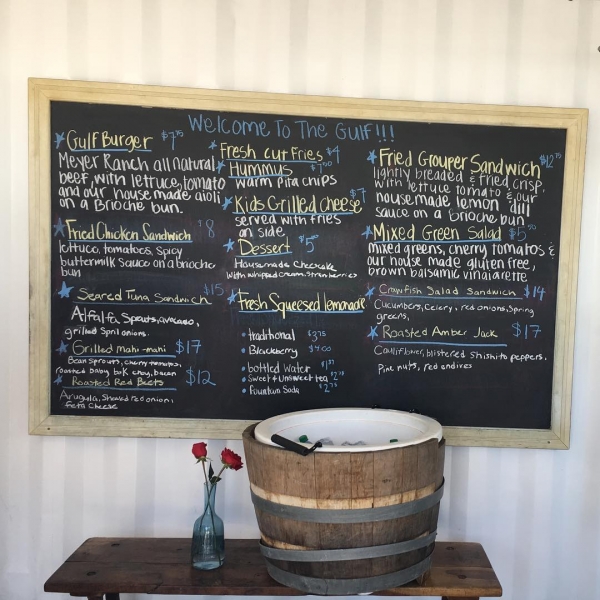 Welcome To The Gulf!!!
Gulf Burger $7
Meyer Ranch all natural
beef, with lettuce, tomato
and our house made aioli
on a Brioche bun.
Fried Chicken Sandwich $8
lettuce, tomatoes, spicy
buttermilk sauce on a brioche
bun
Seared Tuna Sandwich $15
Alfalfa Sprouts, avocado,
grilled Spri onions.
Grilled mahi-mahi $17
Bean Sprouts, cherry tomatoes,
roasted baby bok choy, bacon
Roasted Red Beets $12
Arugula, Shaved red onion,
feta Cheese
Fresh cut Fries $4
Hummus $7
warm pita chips
Kids Grilled Cheese $7
served with fries
on side
Dessert $5
Housemade Cheesecake
with whipped cream, strawberries
Fresh Squeesed lemonade
traditional $3.75
Blackberry $4.00
bottled Water
Sweet & Unsweet tea
fountain Soda
Fried Grouper Sandwich $12
lightly breaded & fried crisp,
with lettuce tomato & our
housemade lemon dill
sauce on a brioche bun
Mixed Green Salad $5
mixed greens, cherry tomatoes &
our house made gluten free,
brown balsamic vinaiarette
Crawfish Salad Sandwich $14
Cucumbers, Celery, red onions, Spring
greens,
Roasted Amber Jack $17
Cauliflower, blistered shishito peppers,
Pine nuts, red endires